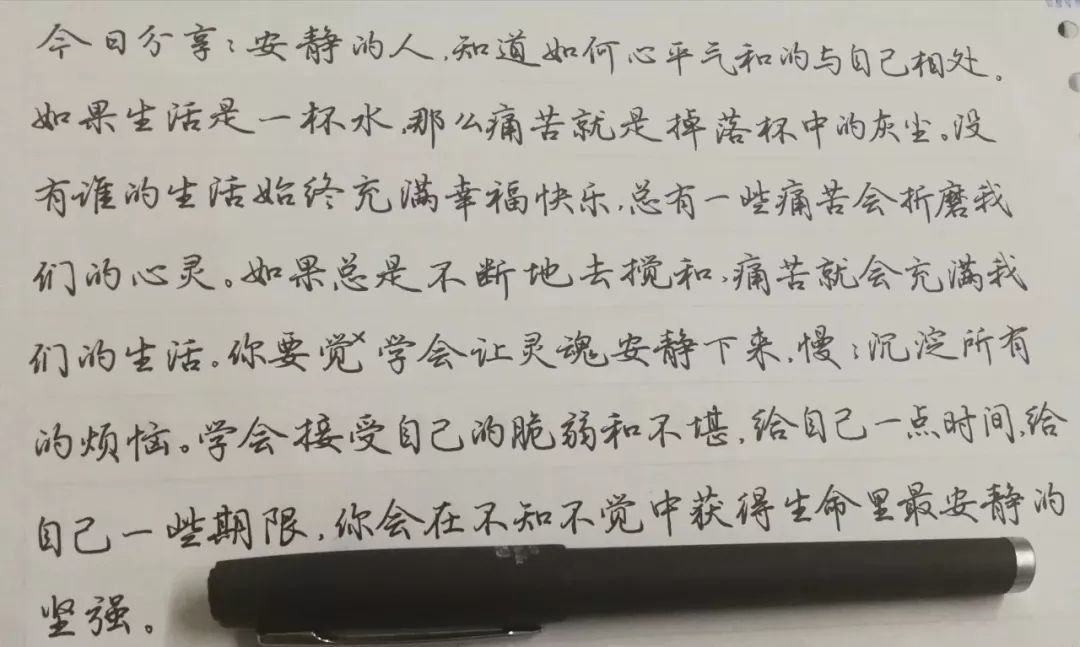 今日分享：安静的人，知道如何心平气和的与自己相处。
如果生活是一杯水，那么痛苦就是掉落杯中的灰尘。没
有谁的生活始终充满幸福快乐，总有一些痛苦会折磨我
们的心灵。如果总是不断地去搅和，痛苦就会充满我
们的生活。你要觉×学会让灵魂安静下来，慢：沉淀所有
的烦恼。学会接受自己的脆弱和不堪，给自己一点时间，给
自己一些期限，你会在不知不觉中获得生命里最安静的
坚强。